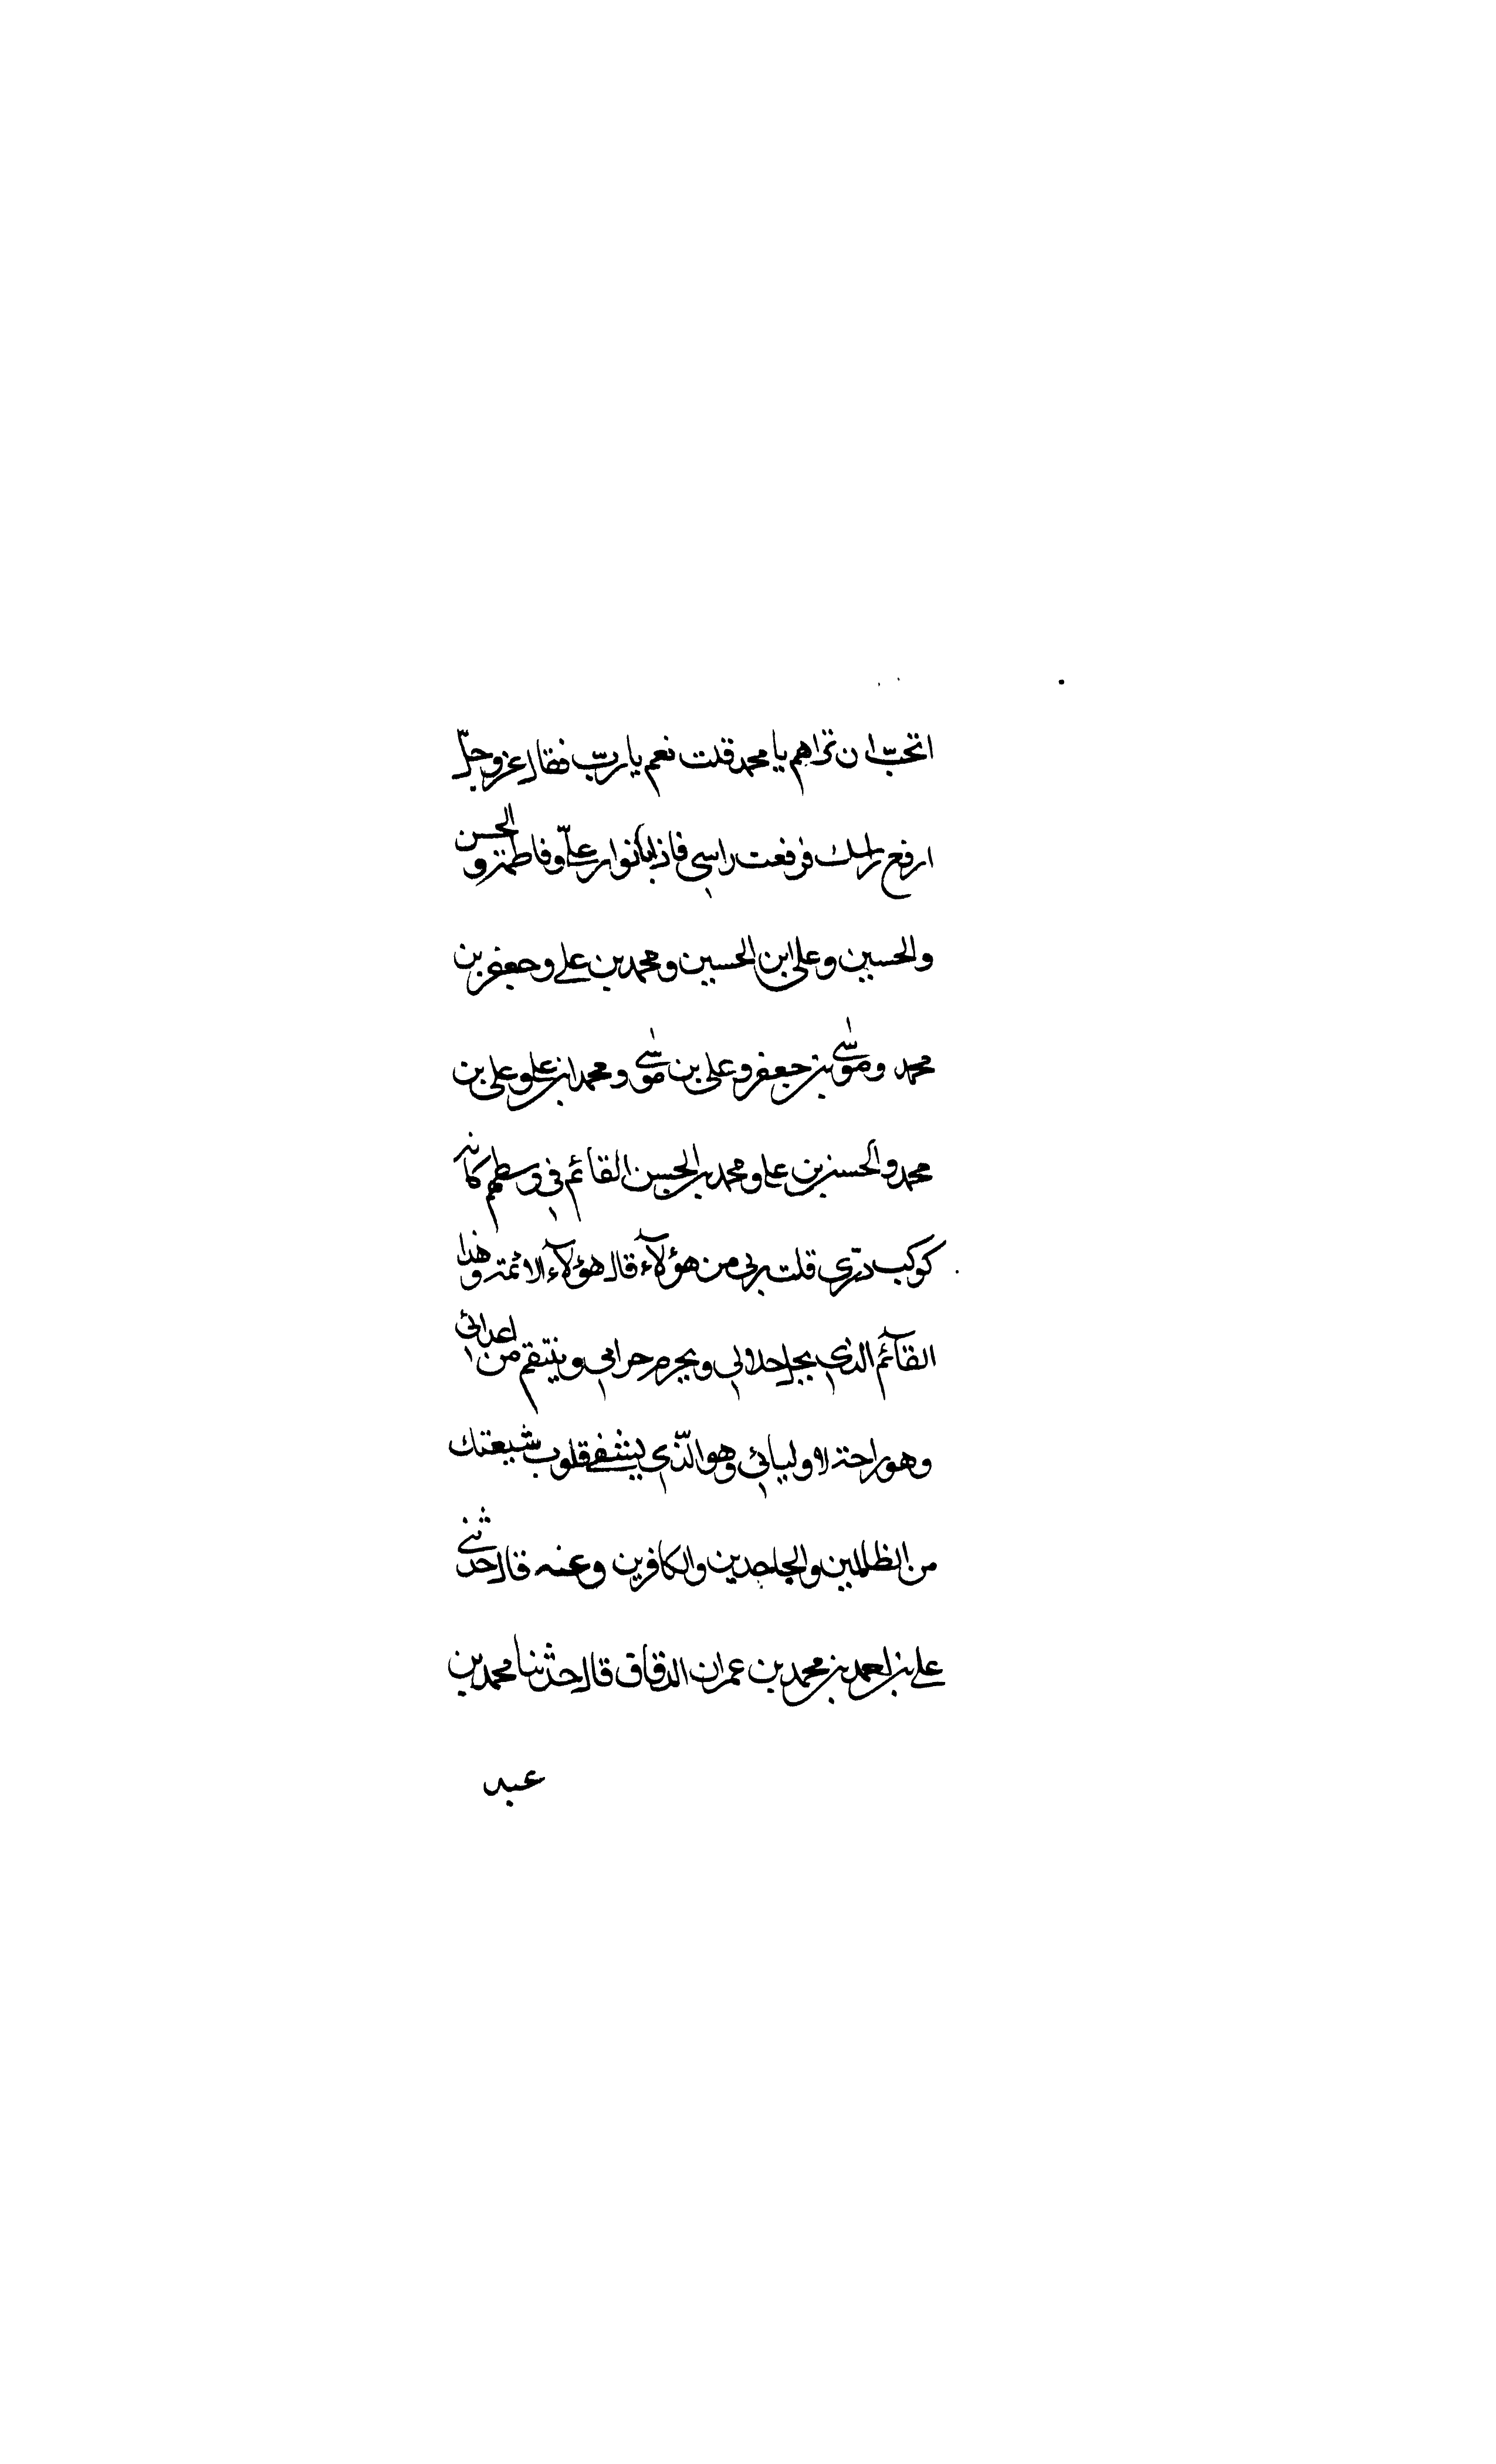 اتحبّ ان تراهم يا محمد قلت نعم يا ربّ فقال عز وجلّ
ارفع راسك فرفعت راسي فاذا بانوار علىّ وفاطمة و الحسن
والحسين وعلى ابن الحسين ومحمد بن على وجعفر بن
محمد وموسى بن جعفر وعلى بن موسى ومحمد ابن على وعلى بن
محمد والحسن بن على ومحمد بن الحسن القائم في وسطهم كانه
كوكب درّي قلت ربي من هؤلآء قال هؤلآء الائمة وهذا
القآئم الذي يحل حلالي ويحرم حرامي وينتقم من اعدائي
وهو راحة لاوليائي وهو الّذي ليشفى قلوب شيعتك
من الظالمين والجاحدين والكافرين وعنه قال حدثنى
على بن احمد بن محمد بن عمران الدقاق قال حدثنا محمد بن
عبد